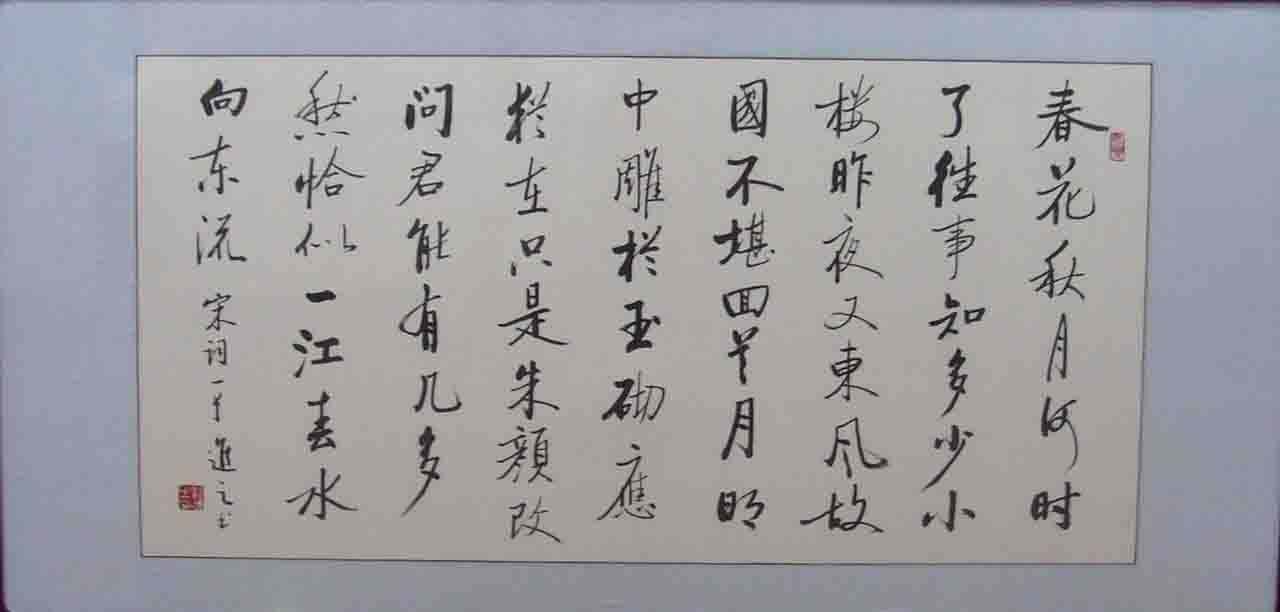 春花秋月何时
了往事知多少小
楼昨夜又東风故
國不堪回首月明
中雕栏玉砌應
犹在只是朱顔改
问君能有几多
愁恰似一江春水
向东流
宋词一首進之书